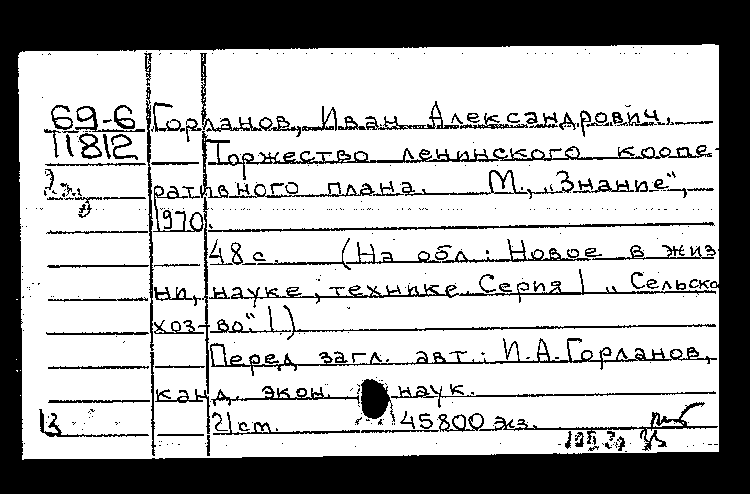 69-6 Горланов, Иван Александрович.
11812 Торжество ленинского коопе-
ративного плана. М., „Знание",
1970.
48 с. (На обл.: Новое в жиз-
ни, науке, технике. Серия | „Сельско
хоз-во". 1)
Перед загл. авт.: И.А. Горланов,
канд. экон. наук.
13 21 ст. 45800 экз.